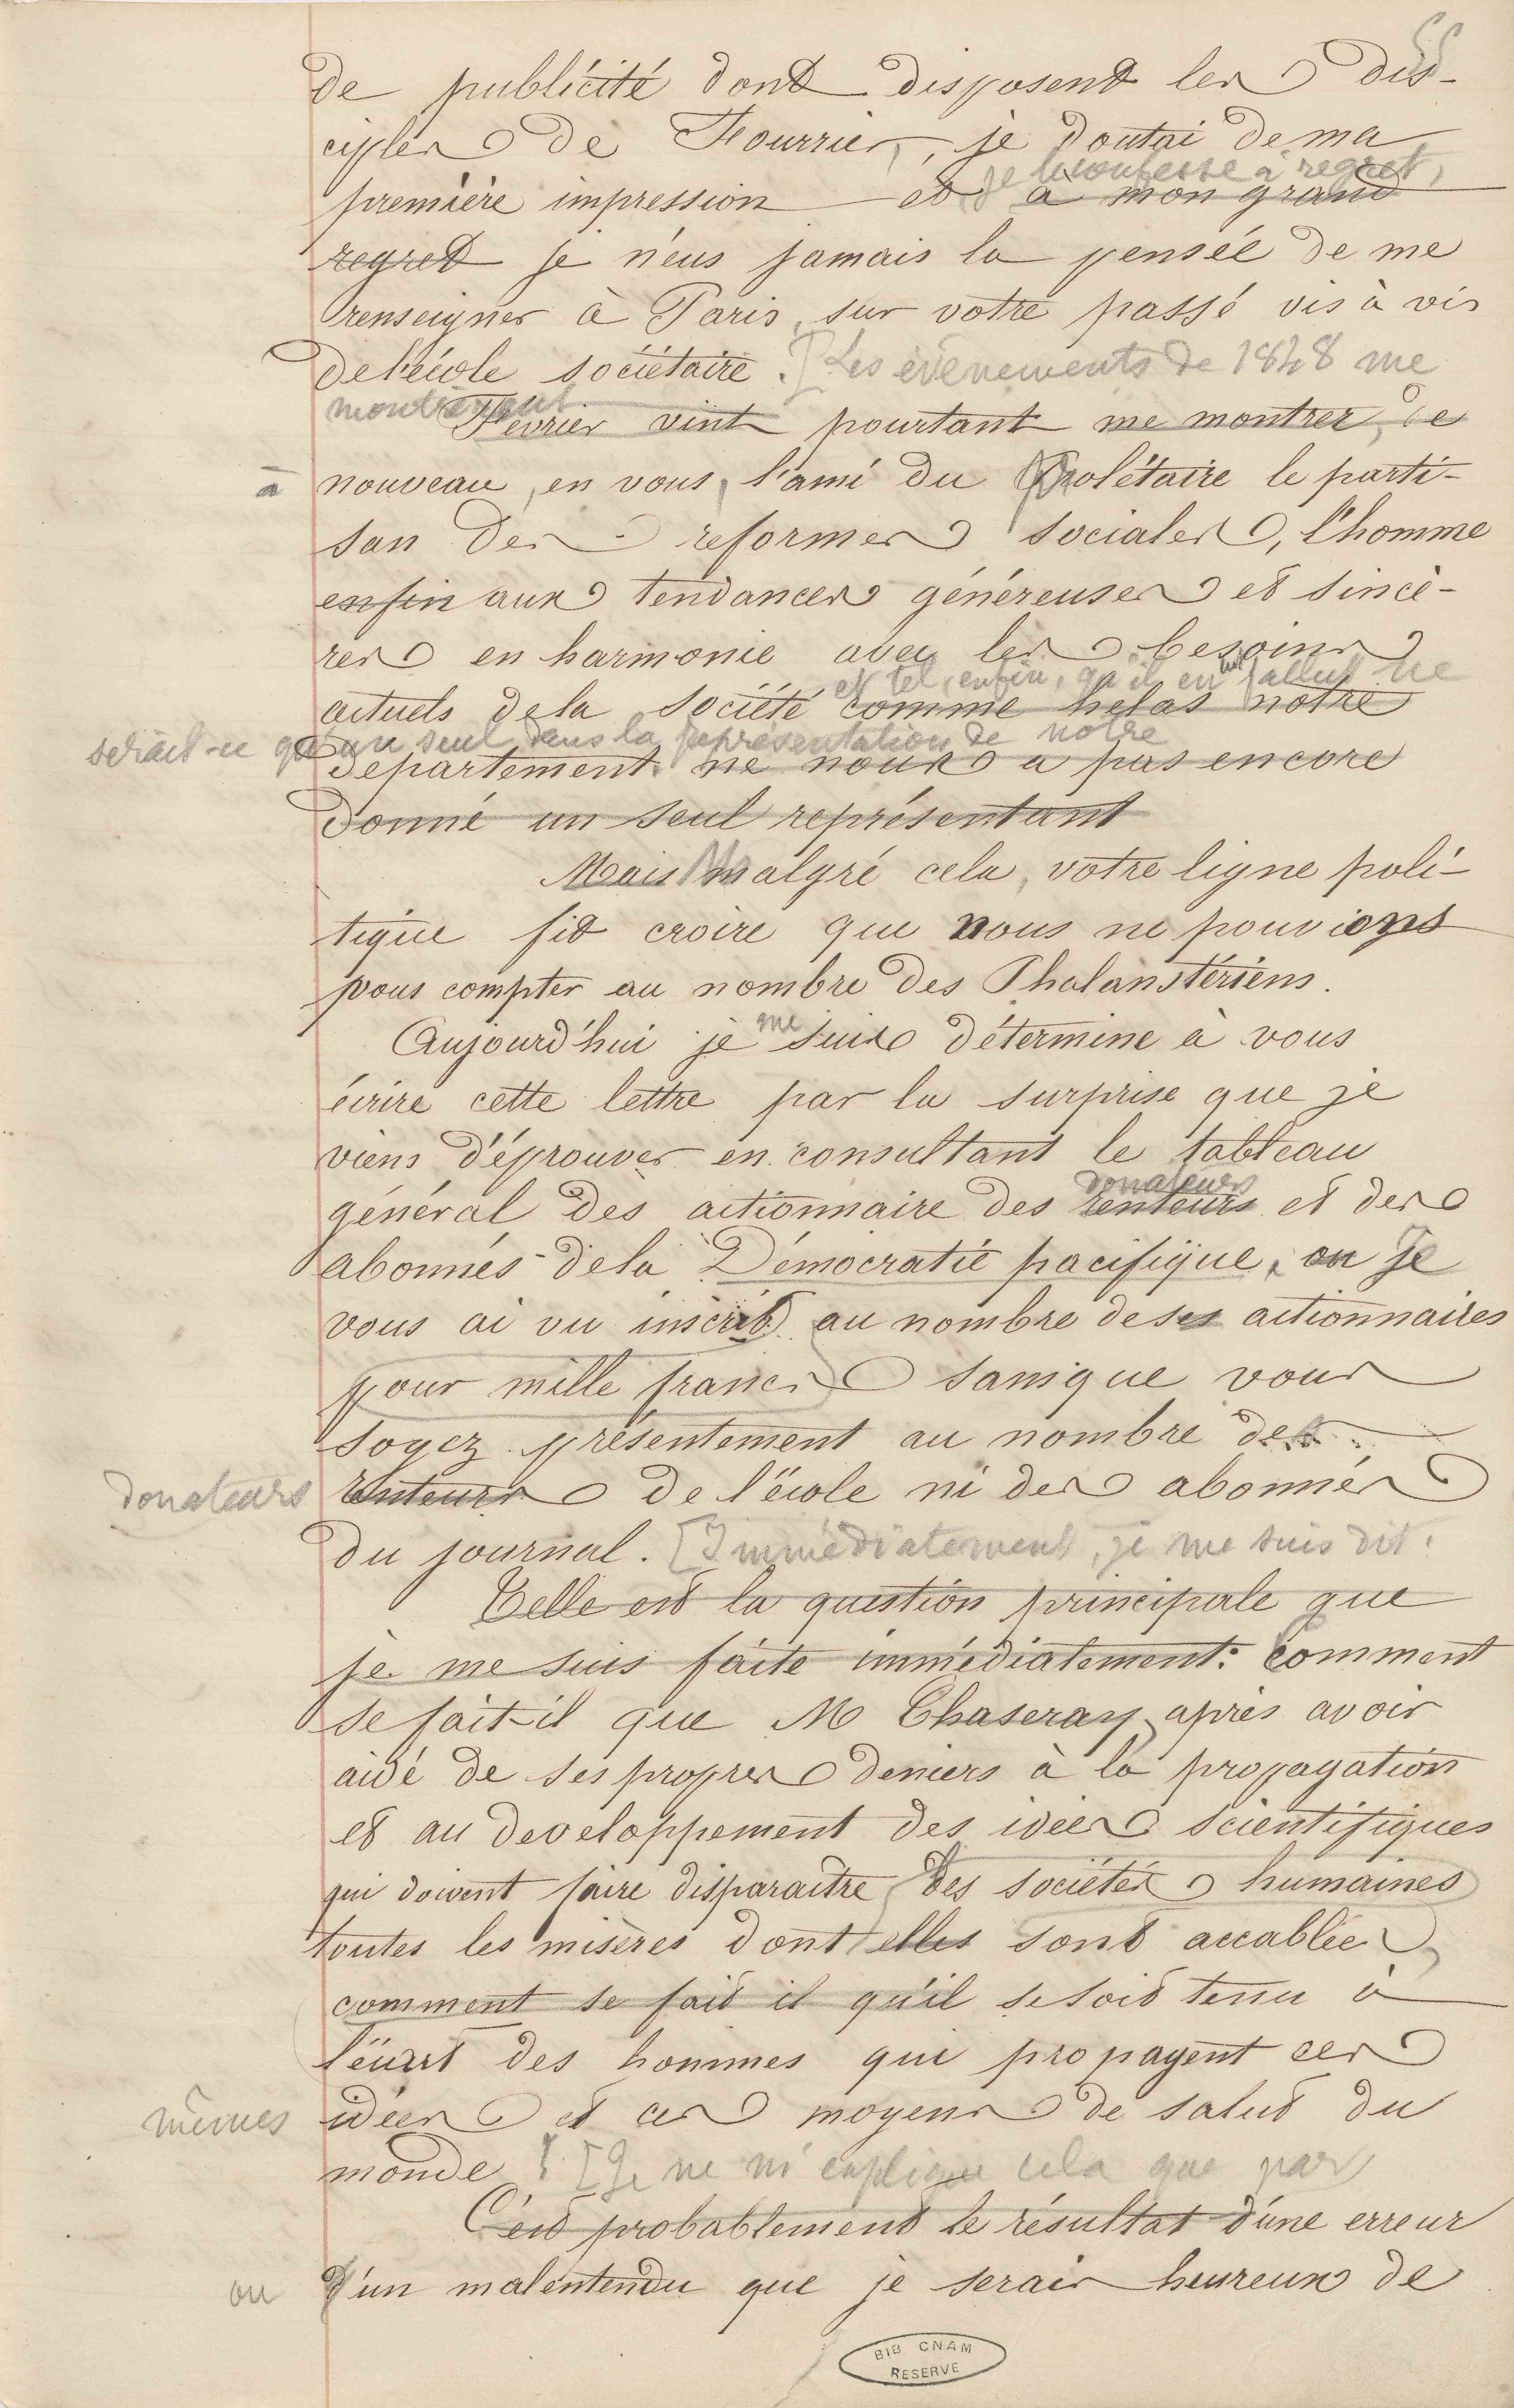 55
de publicité dont disposent les dis-
ciples de Fourrier, je doutai de ma
je le confesse à regret,
première impression et à mon grand
regret je n'eus jamais la pensée de me
renseigner à Paris, sur votre passé vis à vis
de l'école sociétaire. [Les évènements de 1848 me
montrèrent
Fevrier vint pourtant me montrer, de
à nouveau, en vous, l'ami du Prolétaire le parti-
san des reformes sociales, l'homme
enfin aux tendances généreuses et sincè-
res en harmonie avec les besoins
et tel, enfin, qu'il en fallut ne
actuels de la société comme helas notre
serait-ce qu'un seul dans la représentation de notre
département ne nous a pas encore
donné un seul représentant
Mais Malgré cela, votre ligne poli-
tique fit croire que nous ne pouvions
vous compter au nombre des Phalanstériens.
Aujourd'hui je me suis détermine à vous
écrire cette lettre par la surprise que je
viens d'éprouver en consultant le tableau
donateurs
général des actionnaire des renteurs et des
abonnés de la Démocratie pacifique, ou Je
vous ai vu inscrit au nombre de ses actionnaires
pour mille francs sans que vous
soyez présentement au nombre des
donateurs renteurs de l'école ni des abonnés
du journal. [Immédiatement, je me suis dit:
Telle est la question principale que
je me suis faite immédiatement: Comment
se fait-il que M Chaseray après avoir
aidé de ses propres deniers à la propagation
et au developpement des idées scientifiques
qui doivent faire disparaitre des sociétés humaines
toutes les misères dont elles sont accablées,
comment se fait il qu'il se soit tenu à
l'écart des hommes qui propagent ces
mêmes idées et ces moyens de salut du
monde ? [Je ne m'explique cela que par
C'est probablement le résultat d'une erreur
ou d'un malentendu que je serais heureux de
BIB CNAM
RESERVE